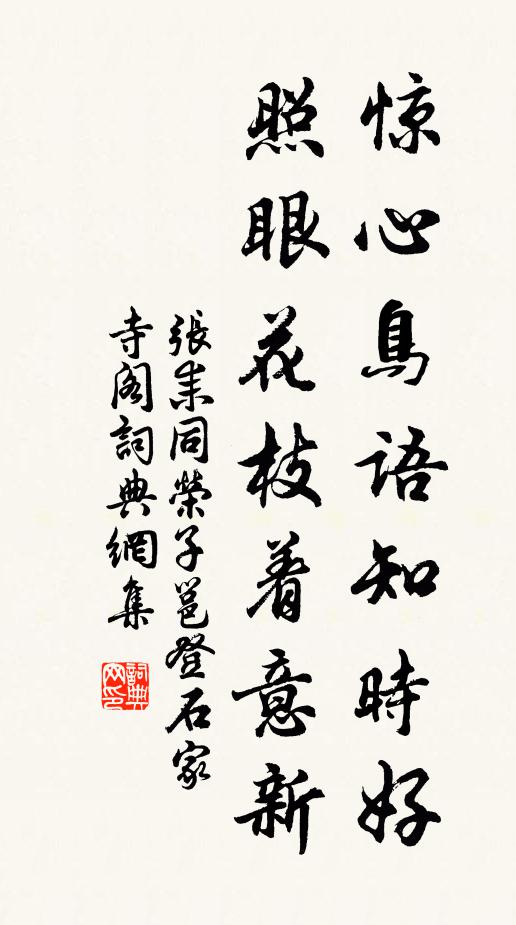 惊心鳥語知時好
照眼花枝着意新
張耒同榮子邕登石家
寺閣詞典網集
詞典網印